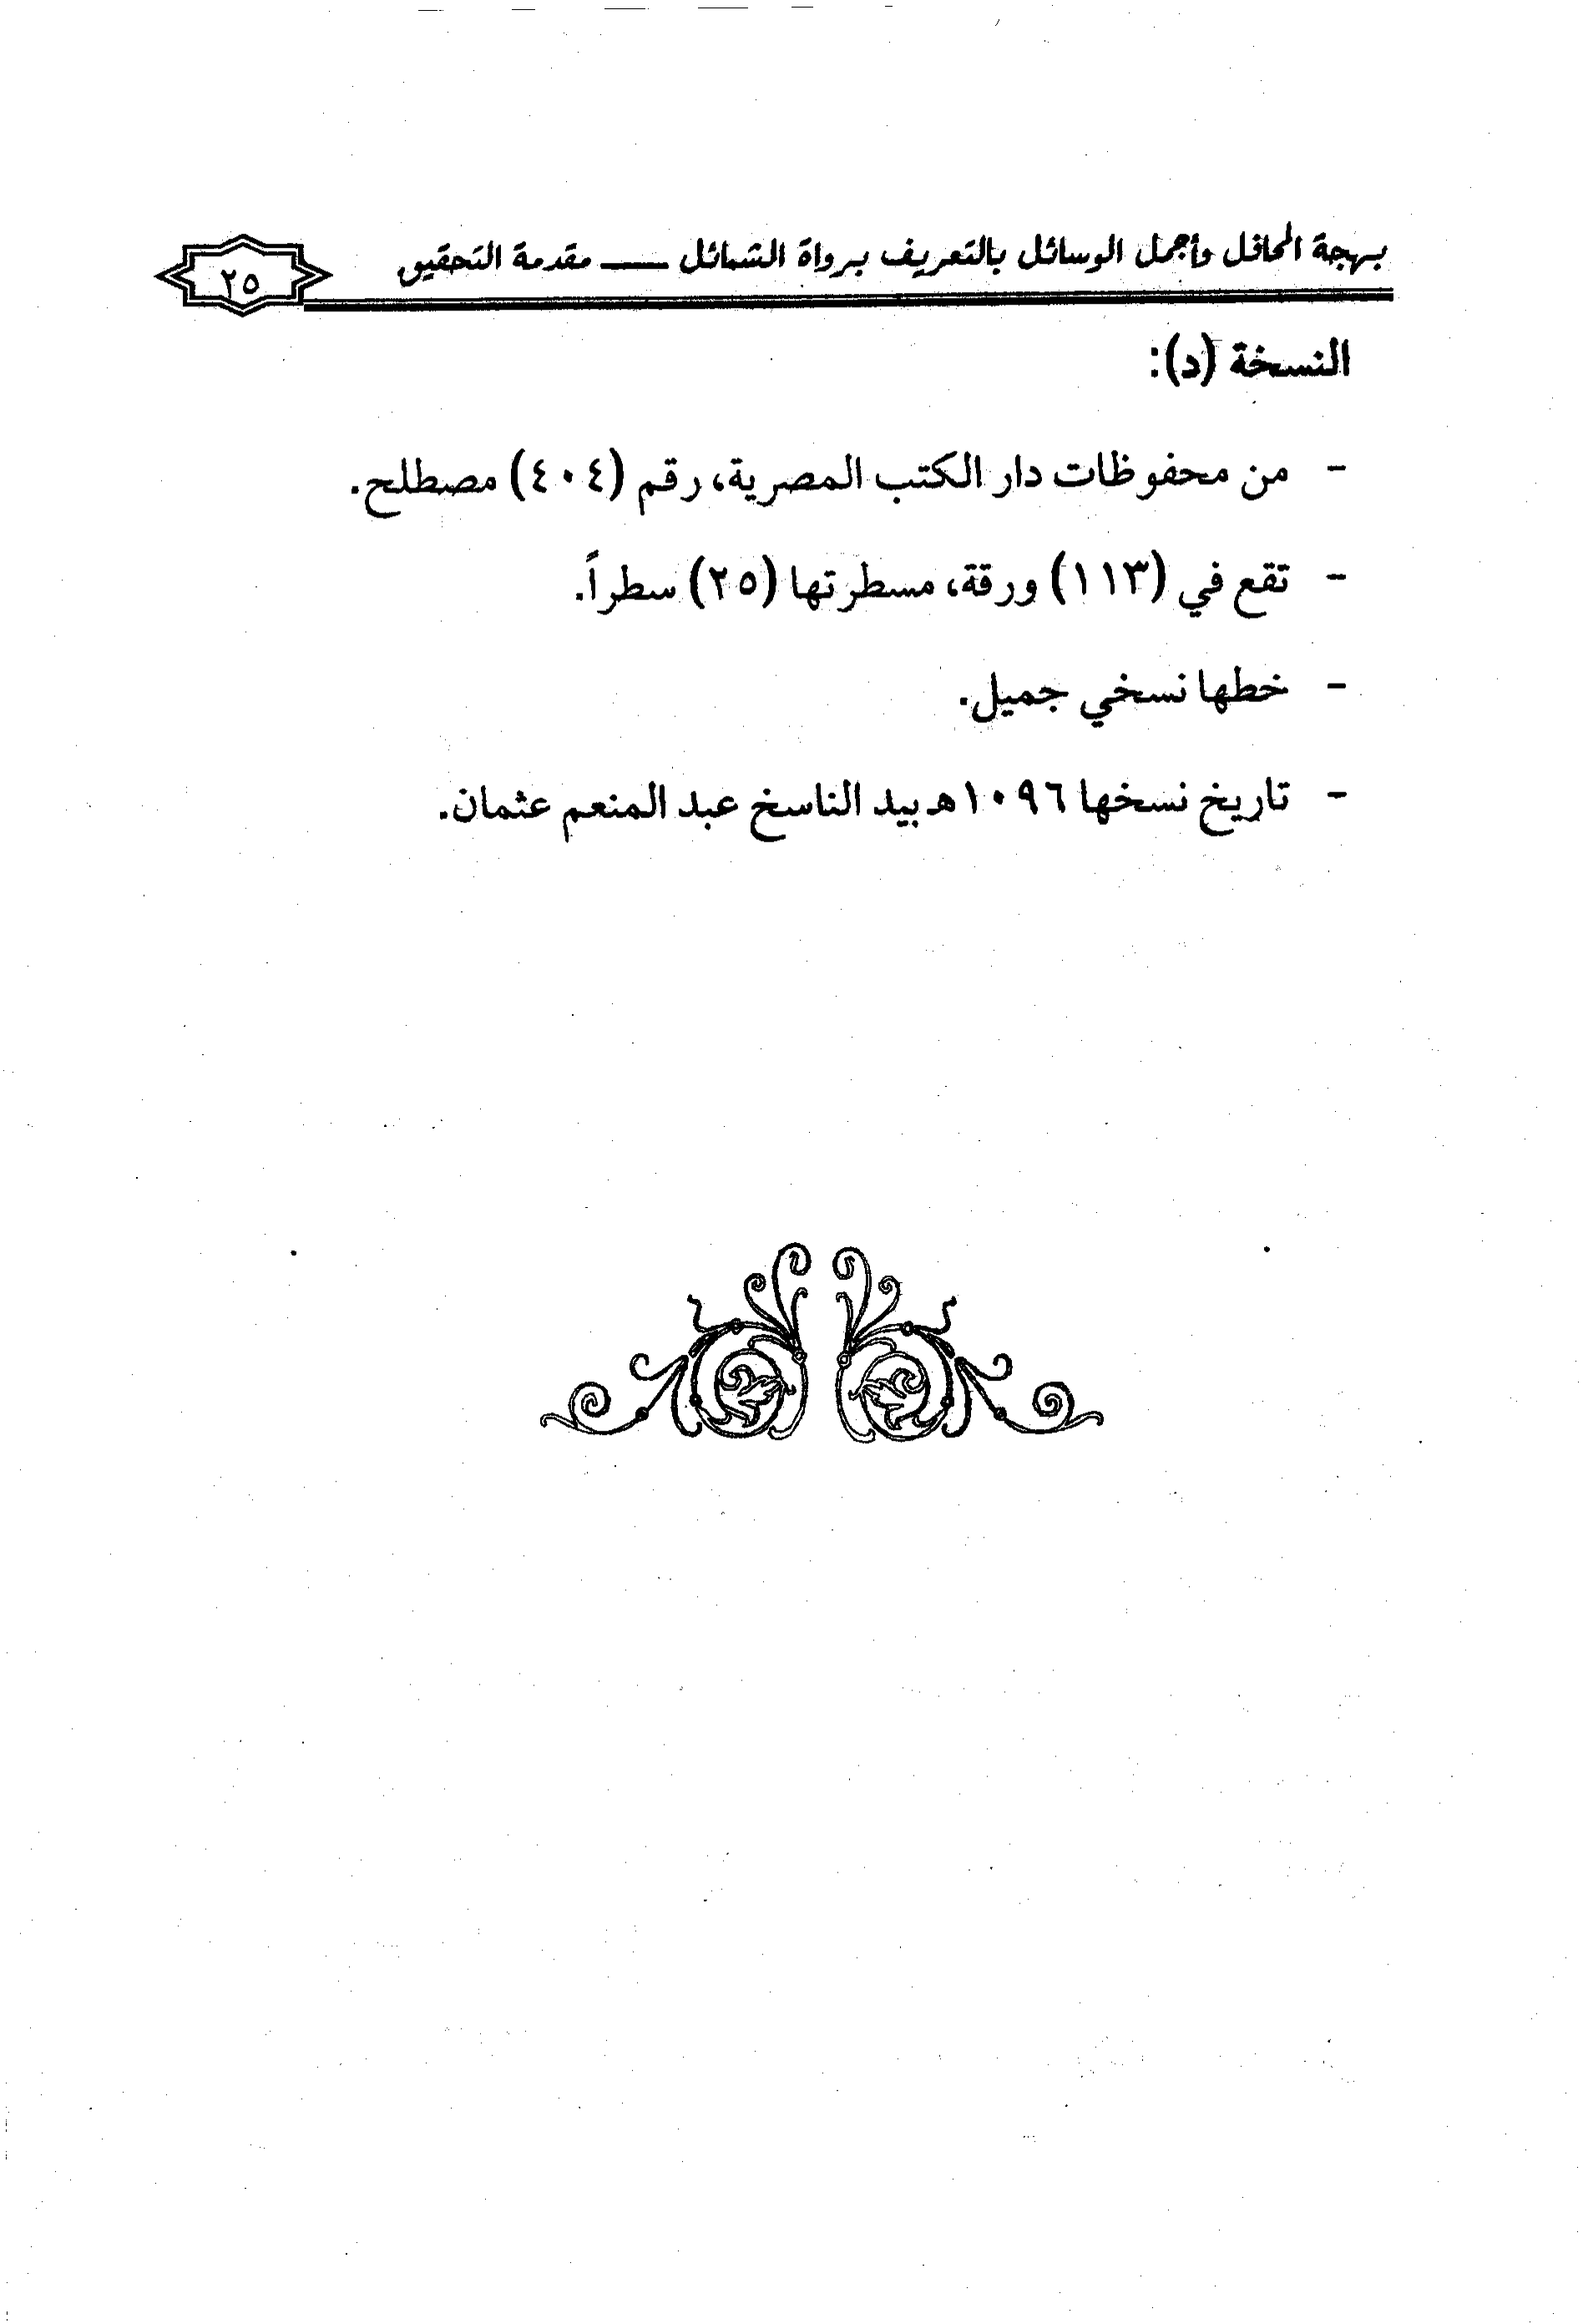 بهجة المحافل وأجمل الوسائل بالتعريف برواة الشمائل ـــــ مقدمة التحقيق
٢٥
النسخة (د):
- من محفوظات دار الكتب المصرية، رقم (٤٠٤) مصطلح.
- تقع في (١١٣) ورقة، مسطرتها (٢٥) سطراً.
- خطها نسخي جميل.
- تاريخ نسخها ١٠٩٦هـ بيد الناسخ عبد المنعم عثمان.